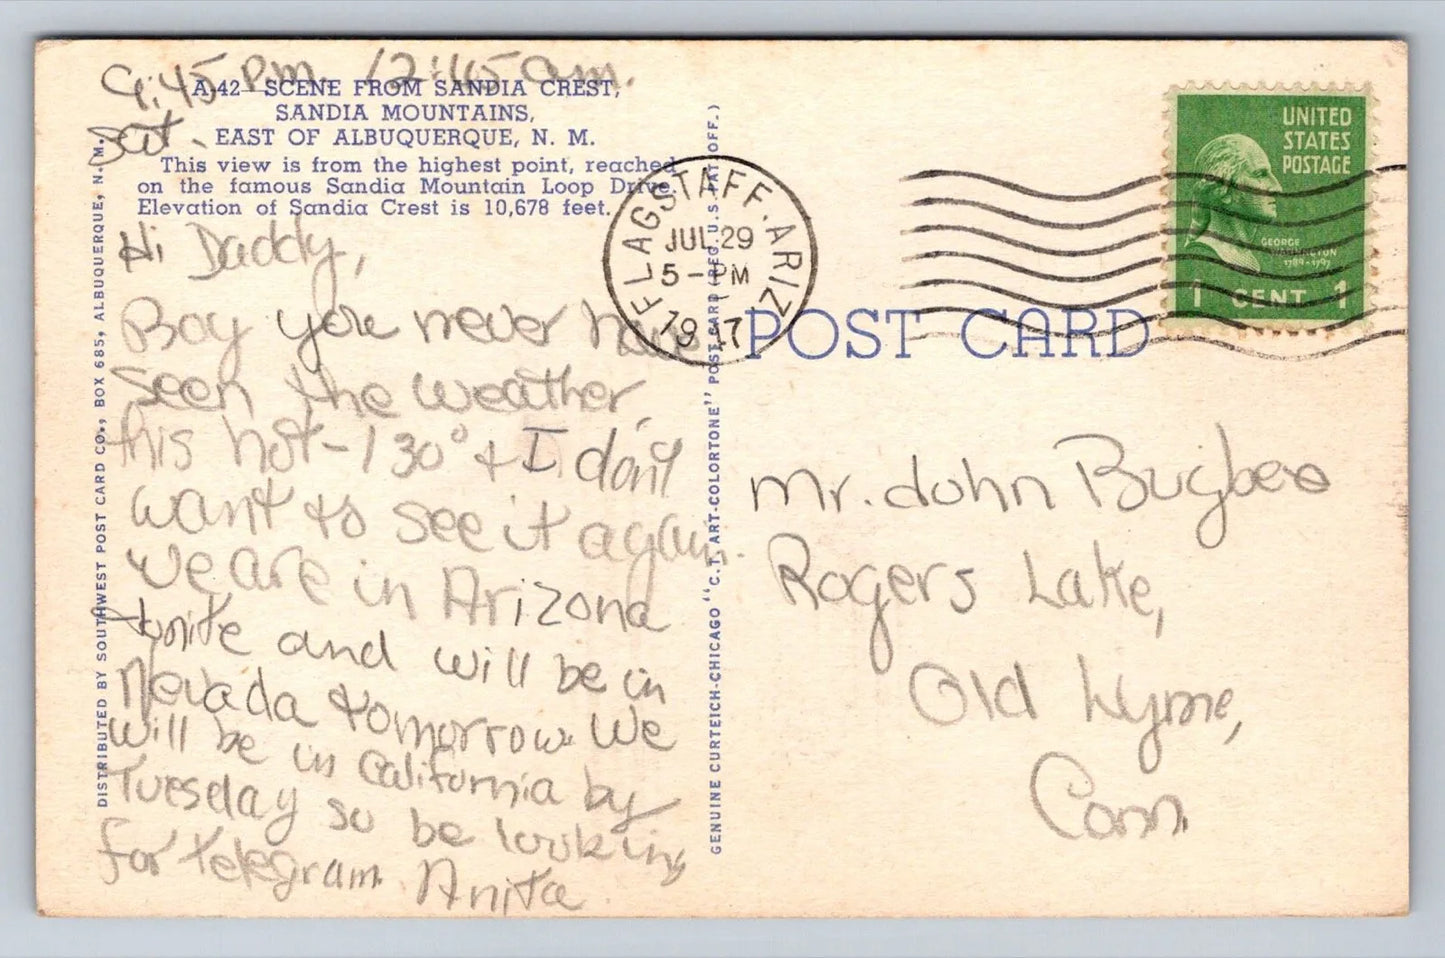 9:45 P.m. 12:45 a.m.
Sat.
A-42—SCENE FROM SANDIA CREST,
SANDIA MOUNTAINS,
EAST OF ALBUQUERQUE, N. M.
This view is from the highest point, reached
on the famous Sandia Mountain Loop Drive.
Elevation of Sandia Crest is 10,678 feet.
Hi Daddy,
Boy you never have
seen the weather,
this hot - 130° + I don't
want to see it again.
We are in Arizona
tonite and will be in
Nevada tomorrow. We
will be in California by
Tuesday so be looking
for telegram. Anita
DISTRIBUTED BY SOUTHWEST POST CARD CO., BOX 685, ALBUQUERQUE, N. M.
GENUINE CURTEICH-CHICAGO "C.T. ART-COLORTONE" POST CARD (REG. U.S. PAT. OFF.)
FLAGSTAFF. ARIZ.
JUL 29
5 - PM
19 7
UNITED
STATES
POSTAGE
GEORGE
WASHINGTON
1789-1797
1 CENT 1
POST CARD
Mr. John Bugbee
Rogers Lake,
Old Lyme,
Conn